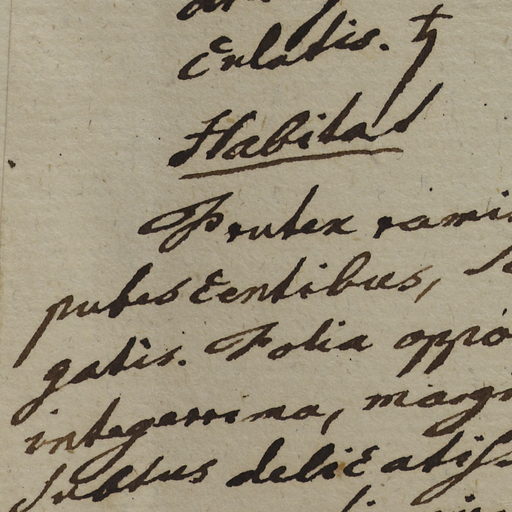 culatis. †
Habitat
Frutex rami
pubescentibus,
gatis. Folia oppo
integerrima, margi
subtus delicatiss